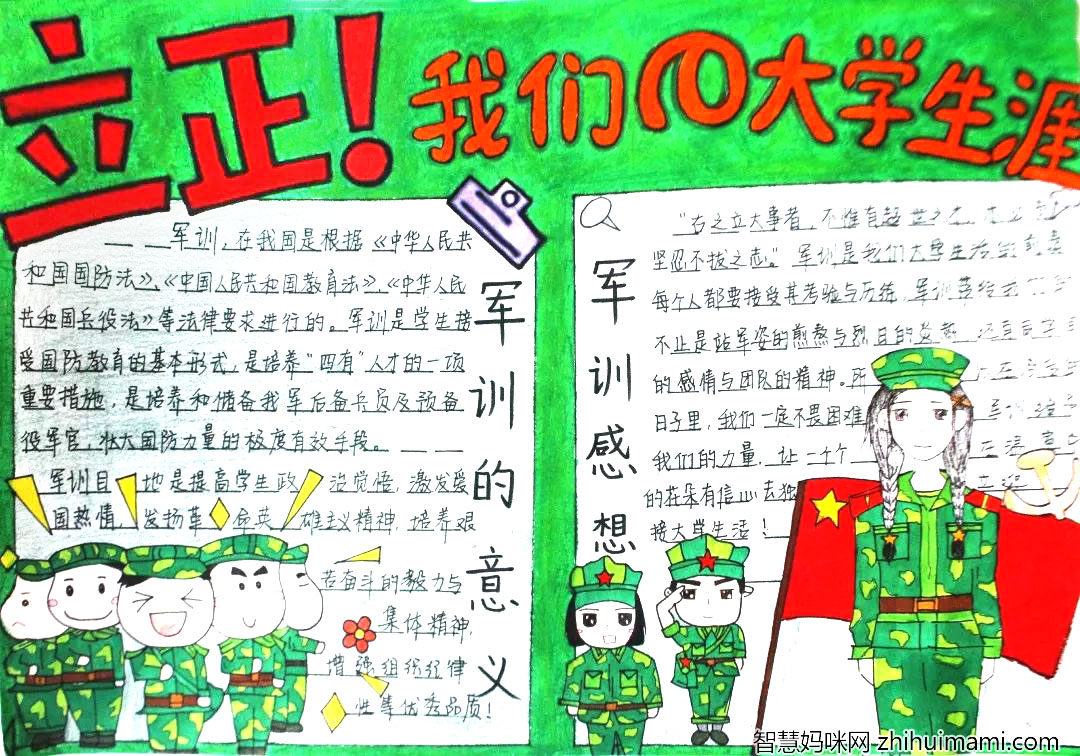 立正！我们的大学生涯
军训的意义
军训，在我国是根据《中华人民共
和国国防法》、《中国人民共和国教育法》、《中华人民
共和国兵役法》等法律要求进行的。军训是学生接
受国防教育的基本形式，是培养“四有”人才的一项
重要措施，是培养和储备我军后备兵员及预备
役军官，壮大国防力量的极度有效手段。
军训目 地是提高学生政 治觉悟，激发爱
国热情，发扬革 命英 雄主义精神，培养艰
苦奋斗的毅力与
集体精神，
增强组织纪律
性等优秀品质！
军训感想
“古之立大事者，不惟有超世之才，
坚忍不拔之志。”军训是我们大学生活的
每个人都要接受其考验与历练，军训
不止是站军姿的煎熬与烈日的
的感情与团队的精神。所
日子里，我们一定不畏困难
我们的力量，让一个个
的花朵有信心去独
接大学生活！
智慧妈咪网 zhihuimami.com